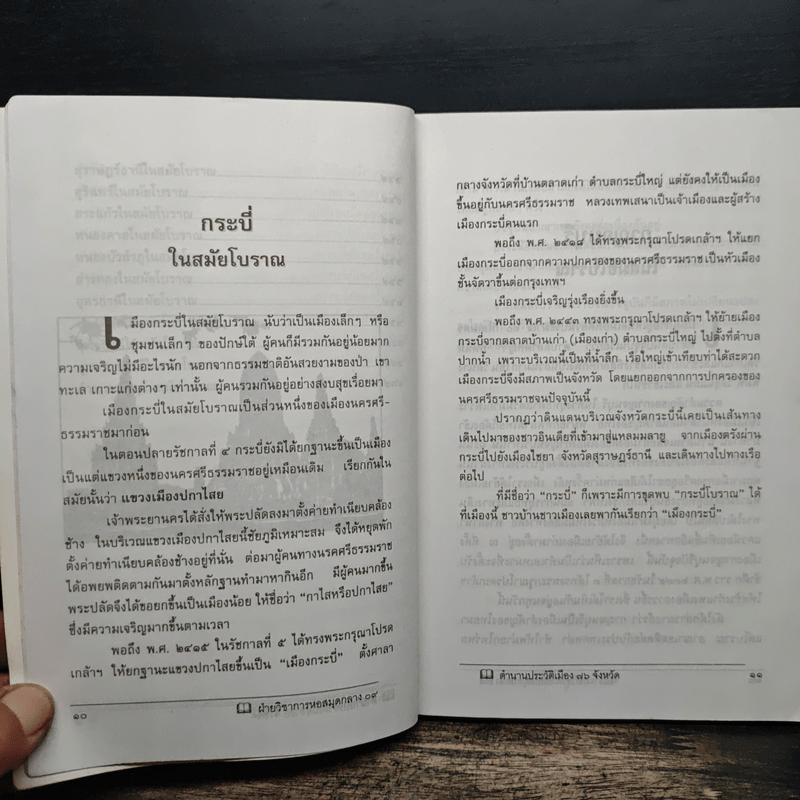 กระบี่
ในสมัยโบราณ
เมืองกระบี่ในสมัยโบราณ นับว่าเป็นเมืองเล็กๆ หรือ
ชุมชนเล็กๆ ของปักษ์ใต้ ผู้คนก็มีรวมกันอยู่น้อยมาก
ความเจริญไม่มีอะไรนัก นอกจากธรรมชาติอันสวยงามของป่า เขา
ทะเล เกาะแก่งต่างๆ เท่านั้น ผู้คนรวมกันอยู่อย่างสงบสุขเรื่อยมา
เมืองกระบี่ในสมัยโบราณเป็นส่วนหนึ่งของเมืองนครศรี-
ธรรมราชมาก่อน
ในตอนปลายรัชกาลที่ ๔ กระบี่ยังมิได้ยกฐานะขึ้นเป็นเมือง
เป็นแต่แขวงหนึ่งของนครศรีธรรมราชอยู่เหมือนเดิม เรียกกันใน
สมัยนั้นว่า แขวงเมืองปกาไสย
เจ้าพระยานครได้สั่งให้พระปลัดลงมาตั้งค่ายทำเนียบคล้อง
ช้าง ในบริเวณแขวงเมืองปกาไสยนี้ชัยภูมิเหมาะสม จึงได้หยุดพัก
ตั้งค่ายทำเนียบคล้องช้างอยู่ที่นั่น ต่อมาผู้คนทางนครศรีธรรมราช
ได้อพยพติดตามกันมาตั้งหลักฐานทำมาหากินอีก มีผู้คนมากขึ้น
พระปลัดจึงได้ขอยกขึ้นเป็นเมืองน้อย ให้ชื่อว่า “กาไสหรือปกาไสย”
ซึ่งมีความเจริญมากขึ้นตามเวลา
พอถึง พ.ศ. ๒๔๑๕ ในรัชกาลที่ ๕ ได้ทรงพระกรุณาโปรด
เกล้าฯ ให้ยกฐานะแขวงปกาไสยขึ้นเป็น “เมืองกระบี่” ตั้งศาลา
ฝ่ายวิชาการหอสมุดกลาง ๐๙
๑๐
กลางจังหวัดที่บ้านตลาดเก่า ตำบลกระบี่ใหญ่ แต่ยังคงให้เป็นเมือง
ขึ้นอยู่กับนครศรีธรรมราช หลวงเทพเสนาเป็นเจ้าเมืองและผู้สร้าง
เมืองกระบี่คนแรก
พอถึง พ.ศ. ๒๔๑๘ ได้ทรงพระกรุณาโปรดเกล้าฯ ให้แยก
เมืองกระบี่ออกจากความปกครองของนครศรีธรรมราชเป็นหัวเมือง
ชั้นจัตวาขึ้นต่อกรุงเทพฯ
เมืองกระบี่เจริญรุ่งเรืองยิ่งขึ้น
พอถึง พ.ศ. ๒๔๔๓ ทรงพระกรุณาโปรดเกล้าฯ ให้ย้ายเมือง
กระบี่จากตลาดบ้านเก่า (เมืองเก่า) ตำบลกระบี่ใหญ่ ไปตั้งที่ตำบล
ปากน้ำ เพราะบริเวณนี้เป็นที่น้ำลึก เรือใหญ่เข้าเทียบท่าได้สะดวก
เมืองกระบี่จึงมีสภาพเป็นจังหวัด โดยแยกออกจากการปกครองของ
นครศรีธรรมราชจนปัจจุบันนี้
ปรากฏว่าดินแดนบริเวณจังหวัดกระบี่นี้เคยเป็นเส้นทาง
เดินไปมาของชาวอินเดียที่เข้ามาสู่แหลมมลายู จากเมืองตรังผ่าน
กระบี่ไปยังเมืองไชยา จังหวัดสุราษฎร์ธานี และเดินทางไปทางเรือ
ต่อไป
ที่มีชื่อว่า “กระบี่” ก็เพราะมีการขุดพบ “กระบี่โบราณ” ได้
ที่เมืองนี้ ชาวบ้านชาวเมืองเลยพากันเรียกว่า “เมืองกระบี่”
ตำนานประวัติเมือง ๗๖ จังหวัด
๑๑